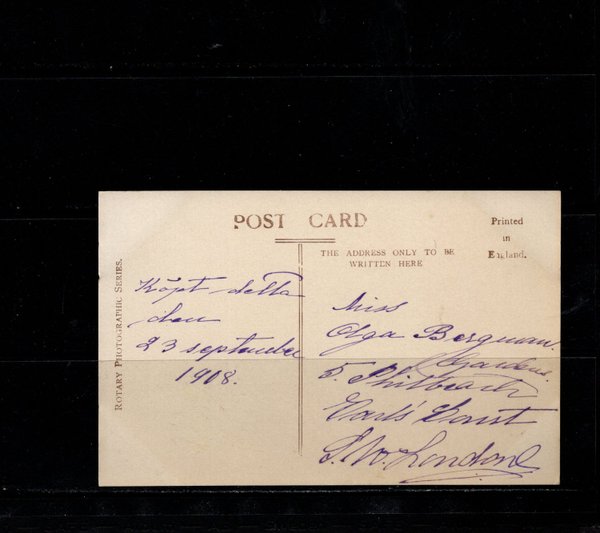 POST CARD
Printed
in
England.
THE ADDRESS ONLY TO BE
WRITTEN HERE
ROTARY PHOTOGRAPHIC SERIES.
Köpt detta
den
23 september
1908.
Miss
Olga Bergman.
5. Philbeach
Gardens.
Earls' Court
S.W. London